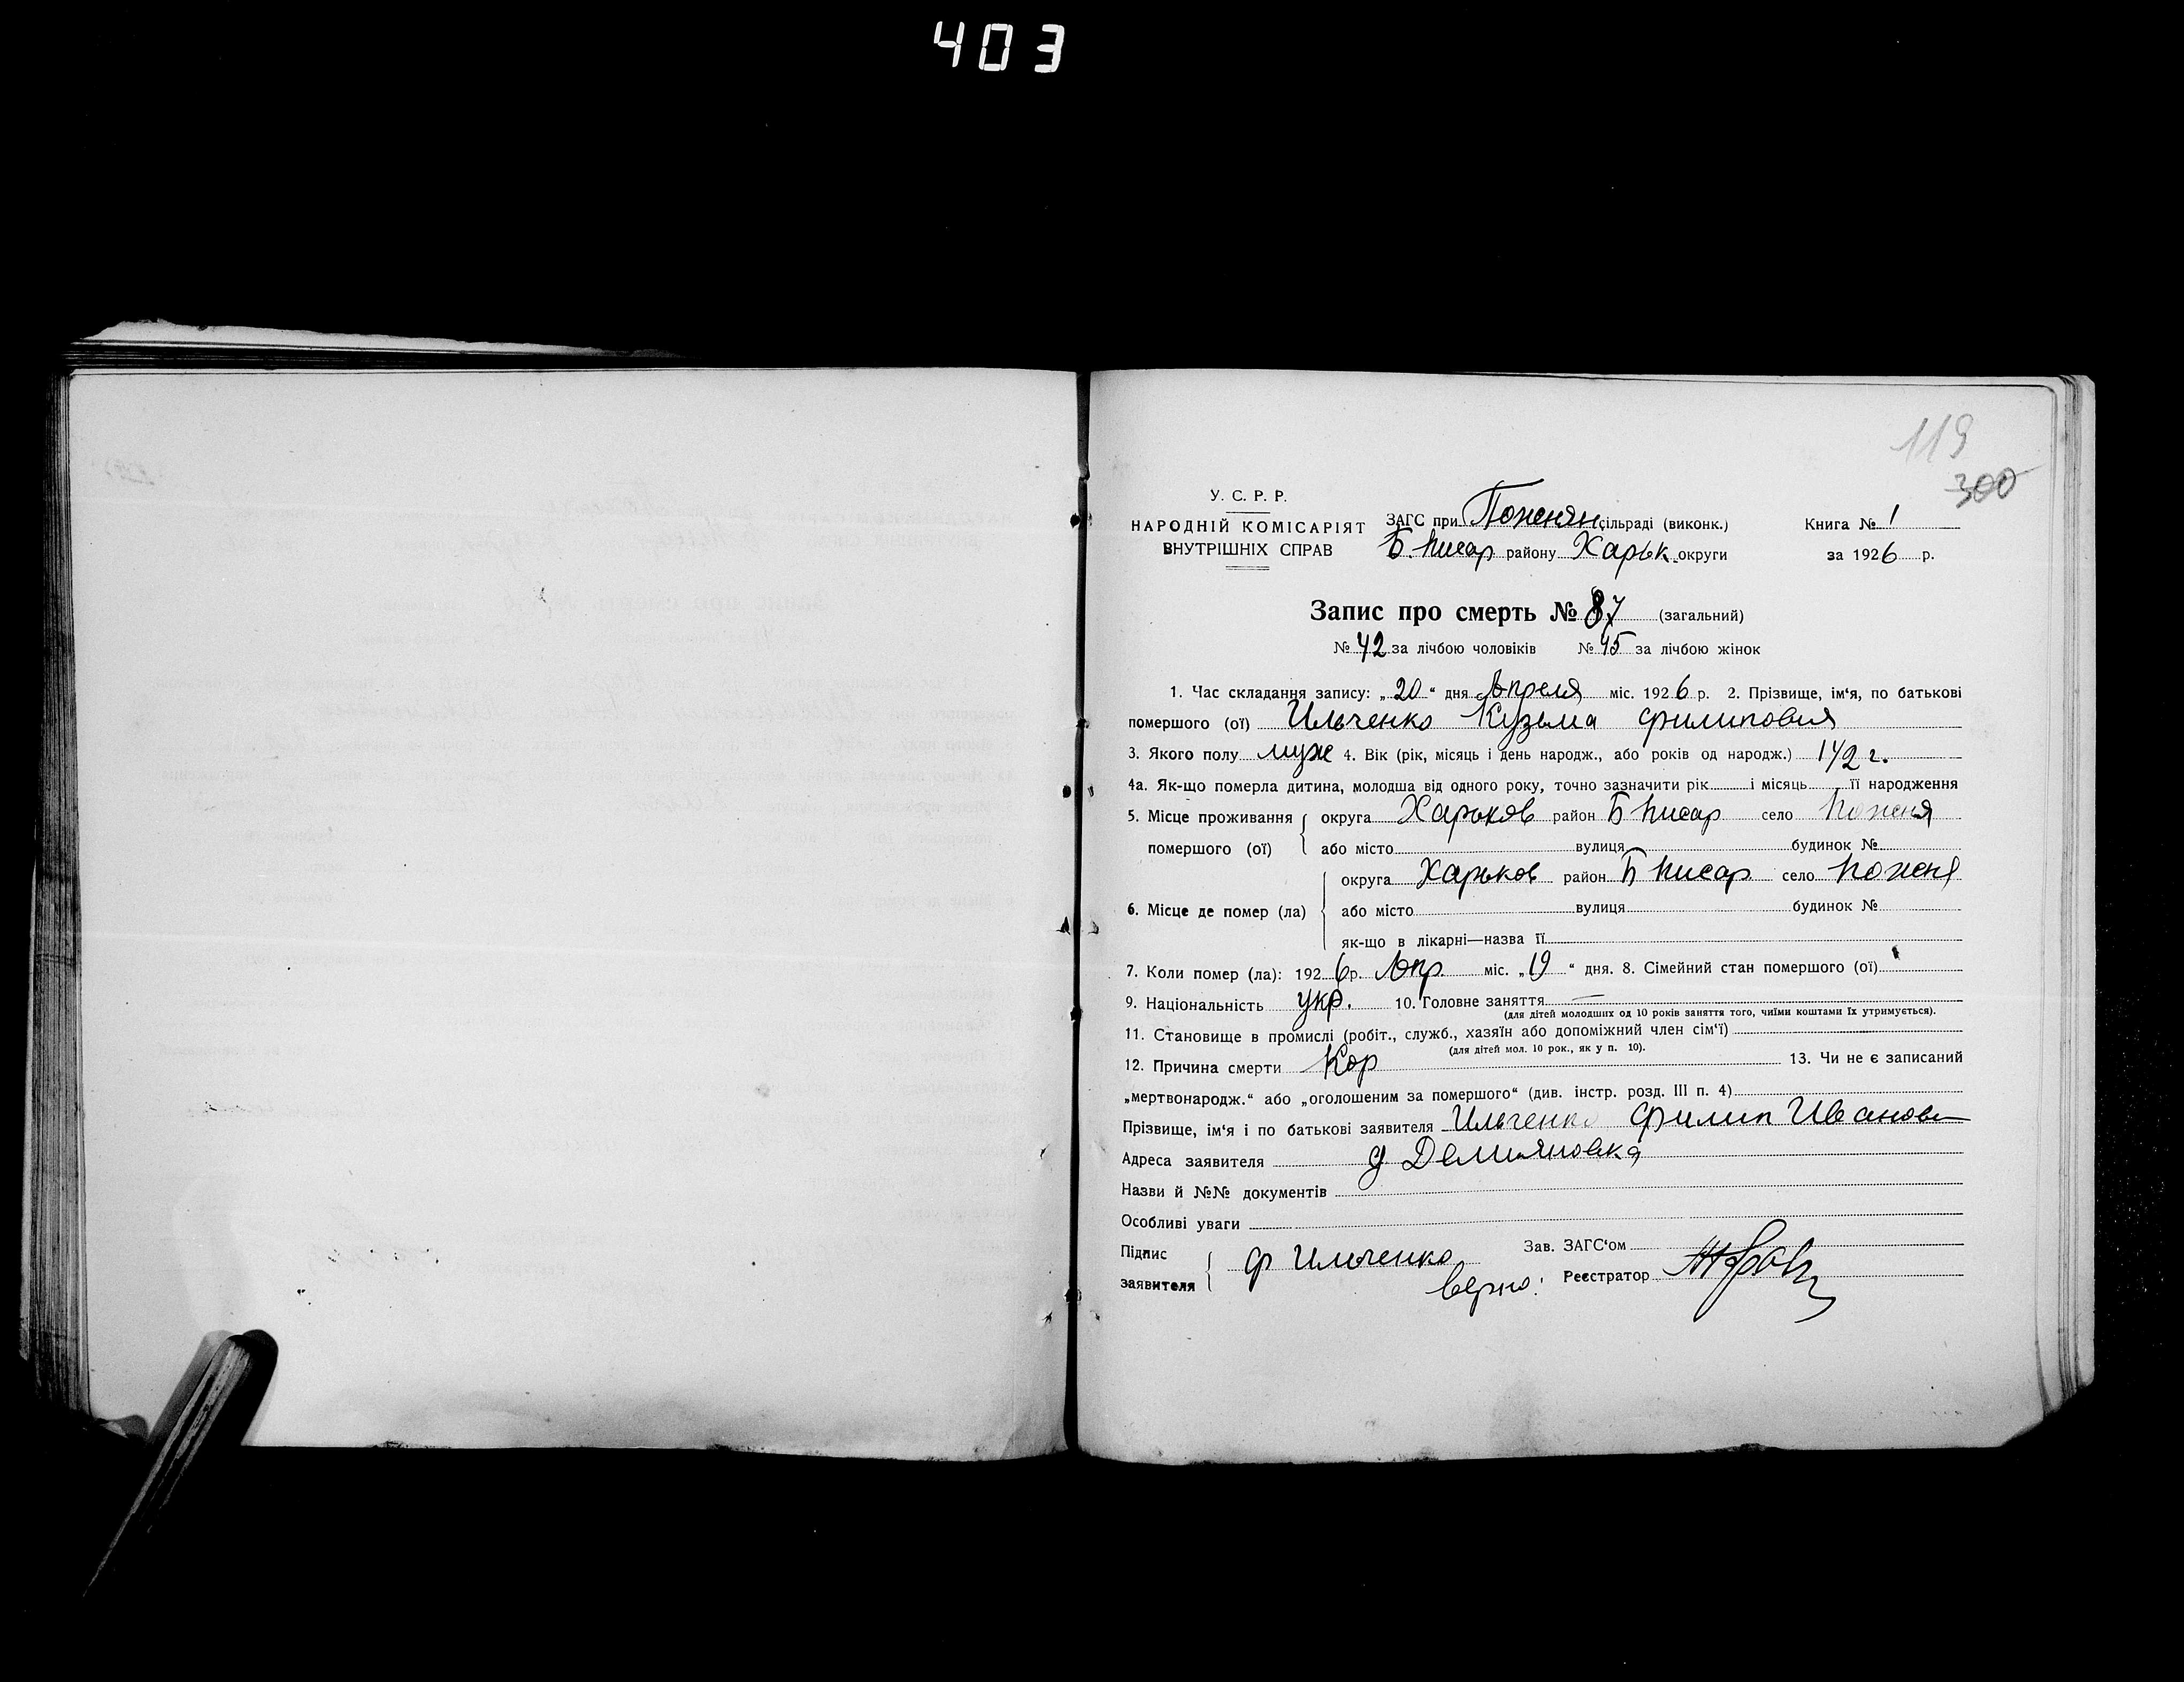 403
119
300
У. С. Р. Р.
НАРОДНІЙ КОМІСАРІЯТ
ВНУТРІШНІХ СПРАВ
ЗАГС при Поженян сільраді (виконк.)
Б. Писар району Харьк. округи
Книга № 1
за 1926 р.
Запис про смерть № 87 (загальний)
№ 42 за лічбою чоловіків № 45 за лічбою жінок
1. Час складання запису: „20“ дня Апреля міс. 1926 р. 2. Прізвище, ім‘я, по батькові
помершого (ої) Ильченко Кузьма Филиповия
3. Якого полу муж 4. Вік (рік, місяць і день народж., або років од народж.) 1 1/2 г.
4а. Як-що померла дитина, молодша від одного року, точно зазначити рік і місяць її народження
5. Місце проживання округа Харьков район Б Писар село Пожня
помершого (ої) або місто вулиця будинок №
округа Харьков район Б Писар село Пожня
6. Місце де помер (ла) або місто вулиця будинок №
як-що в лікарні—назва її
7. Коли помер (ла): 1926 р. Апр. міс. „19“ дня. 8. Сімейний стан помершого (ої)
9. Національність укр. 10. Головне заняття —
(для дітей молодших од 10 років заняття того, чиїми коштами їх утримується).
11. Становище в промислі (робіт., служб., хазяїн або допоміжний член сім‘ї)
(для дітей мол. 10 рок., як у п. 10).
12. Причина смерти Кор 13. Чи не є записаний
„мертвонародж.“ або „оголошеним за помершого“ (див. інстр. розд. III п. 4)
Прізвище, ім‘я і по батькові заявителя Ильченко Филип Иванов
Адреса заявителя д Демияновка
Назви й №№ документів
Особливі уваги
Підпис
заявителя Ф Ильченко
Зав. ЗАГС‘ом
верно: Реєстратор